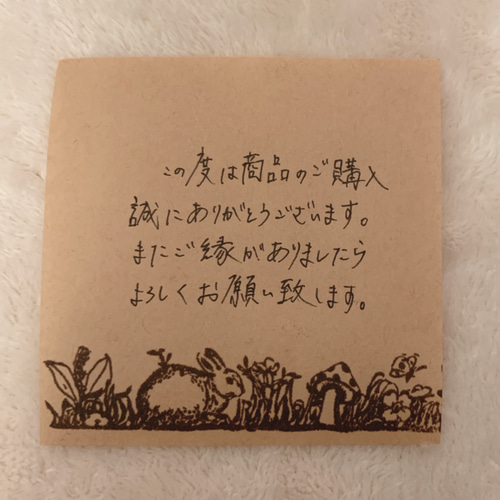 この度は商品のご購入
誠にありがとうございます。
またご縁がありましたら
よろしくお願い致します。